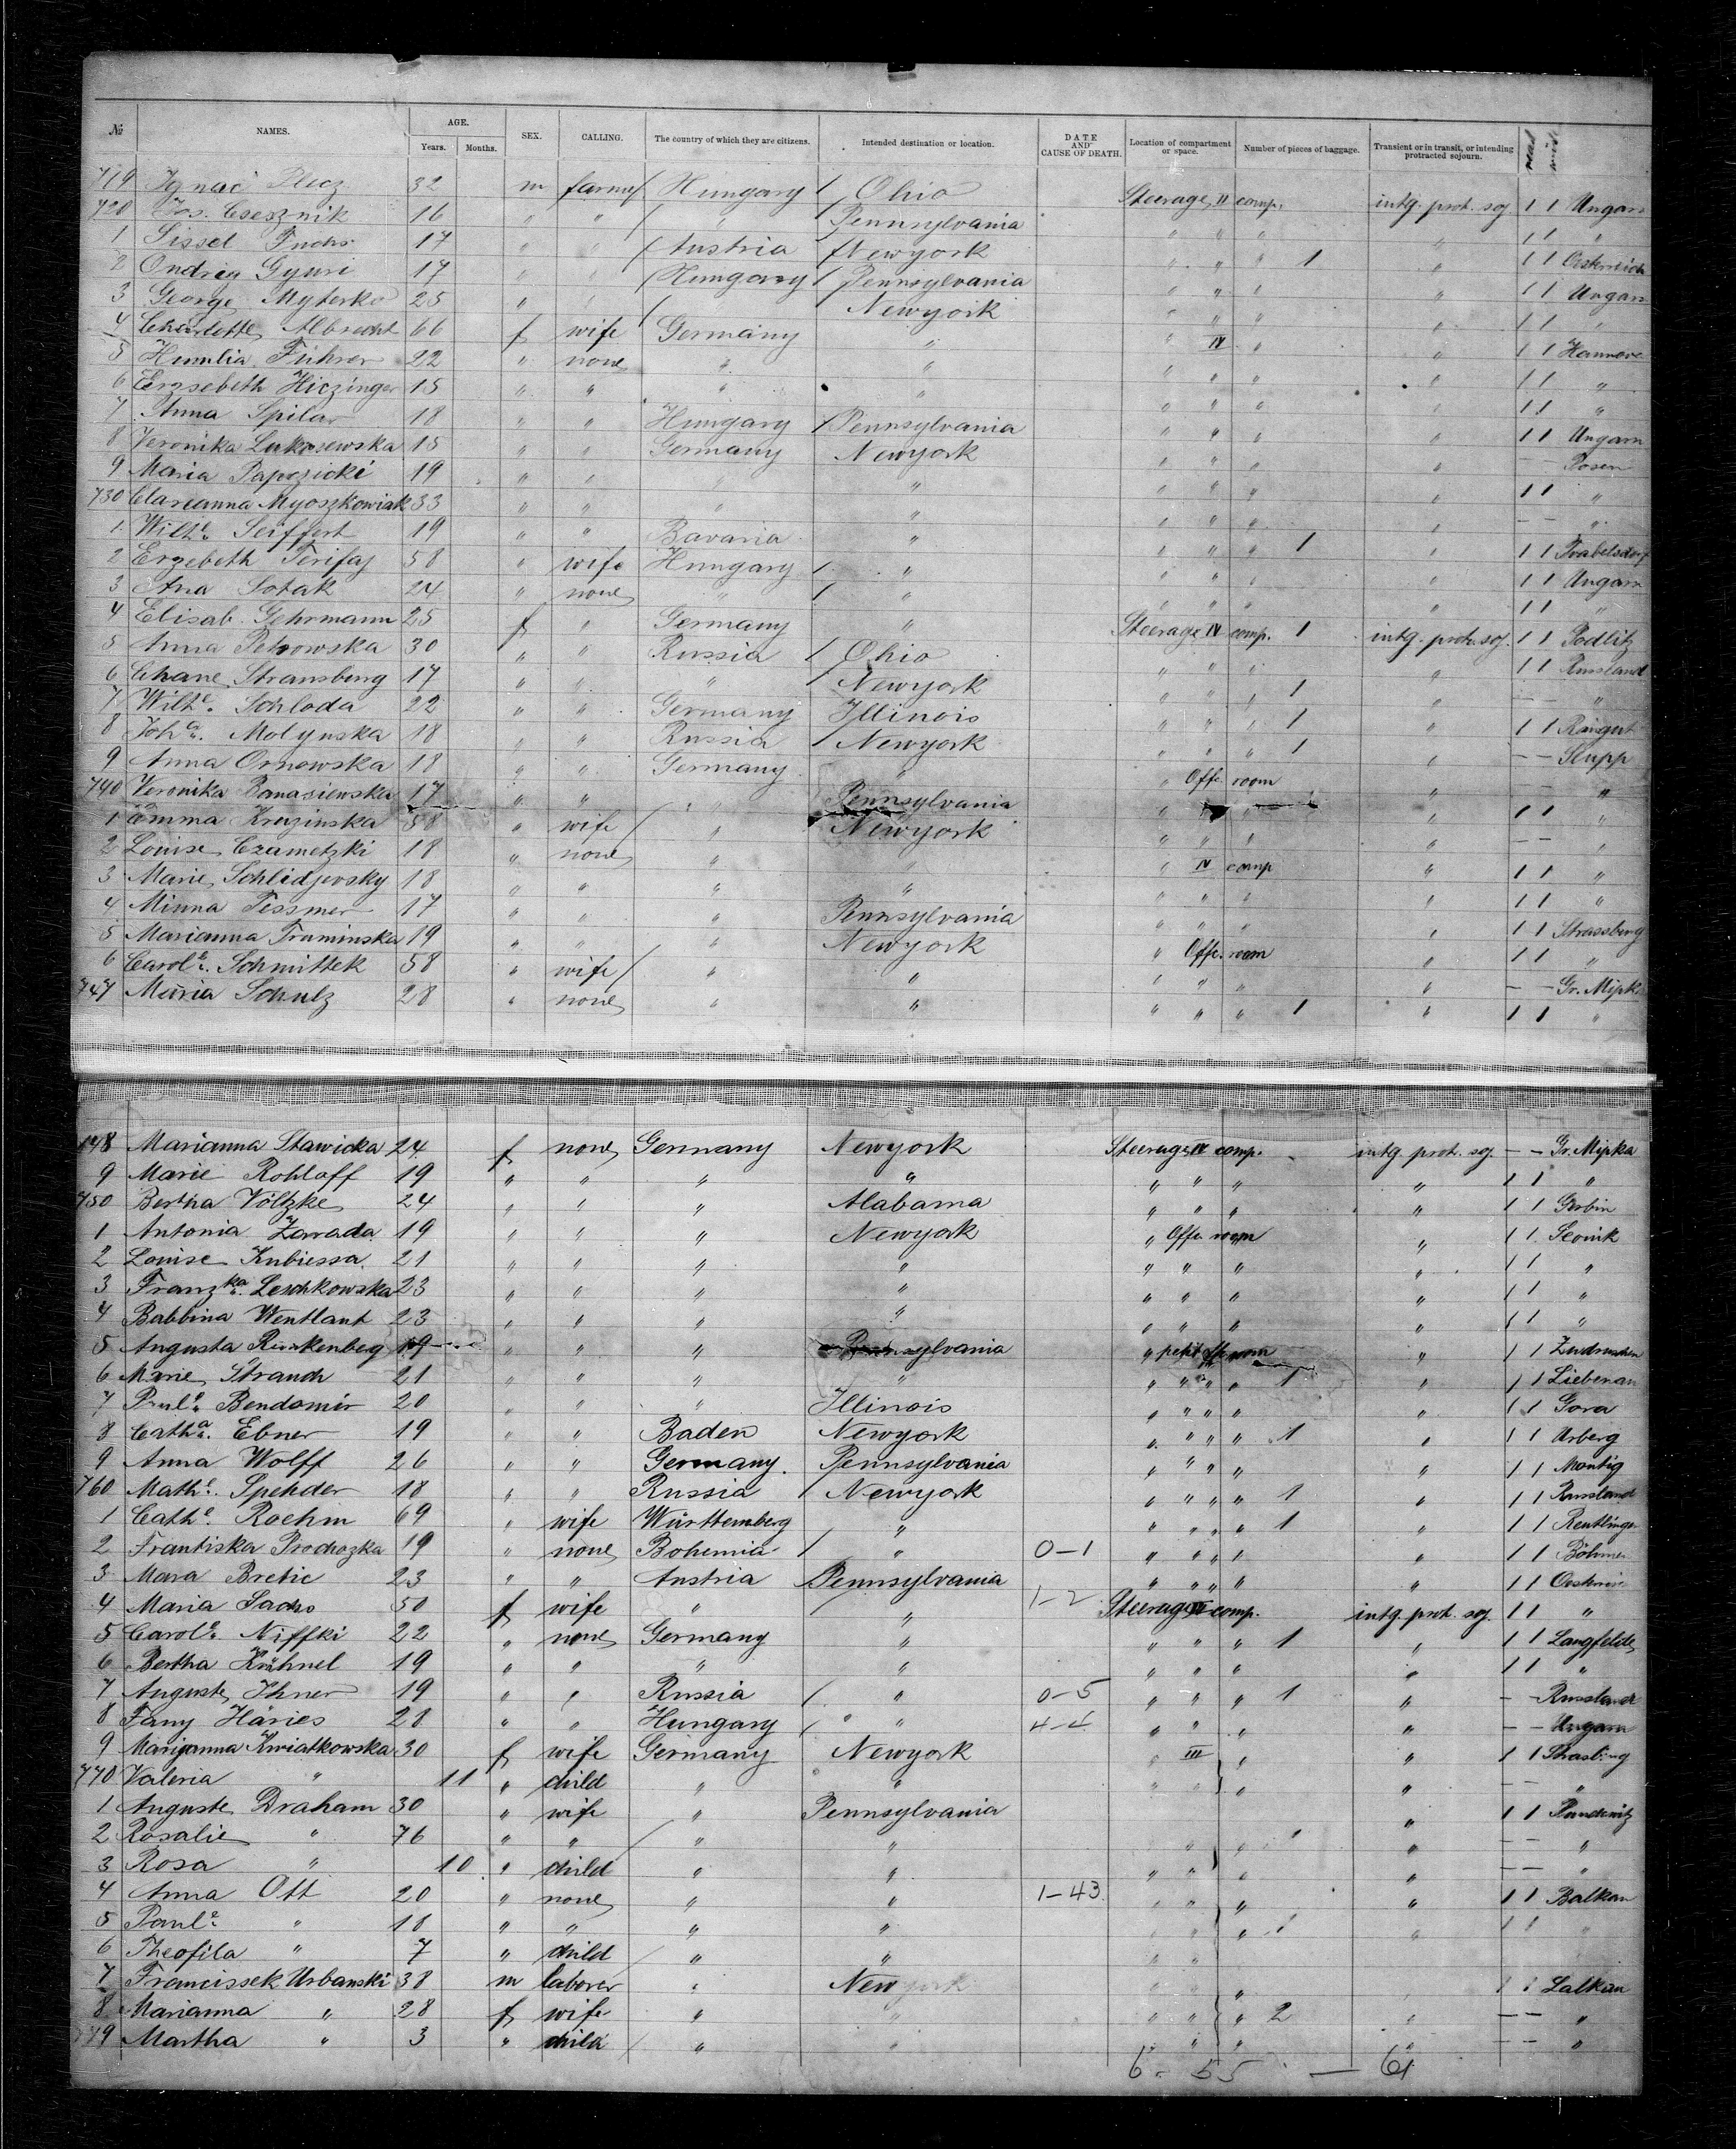 № NAMES. AGE. Years. Months. SEX. CALLING. The country of which they are citizens. Intended destination or location. DATE AND CAUSE OF DEATH. Location of compartment or space. Number of pieces of baggage. Transient or in transit, or intending protracted sojourn.
719 Ignac Plecz 32 m farmer Hungary / Ohio Steerage II comp. intg. prot. soj. 1 1 Ungarn
720 Jos. Csesznik 16 " " / " / Pennsylvania " " " " 1 1 "
1 Sissel Fuchs 17 " " / Austria / Newyork " " " 1 " 1 1 Oesterreich
2 Ondrig Gyuri 17 " " / Hungary / Pennsylvania " " " " 1 1 Ungarn
3 George Myterko 25 " " / " / Newyork " " " " 1 1 "
4 Charlotte Albrecht 66 f wife Germany " " IV " " 1 1 Hannove
5 Humlia Führer 22 " none " " " " " " 1 1 "
6 Erzsebeth Hiczinger 15 " " " " " " " " 1 1 "
7 Anna Spilar 18 " " Hungary / Pennsylvania " " " " 1 1 Ungarn
8 Veronika Lukasewska 15 " " Germany Newyork " " " " — — Posen
9 Maria Papozicki 19 " " " " " " " " 1 1 "
730 Marianna Myoszkowiak 33 " " " " " " " " — — "
1 Wilh.e Seiffert 19 " " Bavaria " " " " 1 " 1 1
2 Erzebeth Terifaj 58 " wife Hungary / " " " " " 1 1 Ungarn
3 Ana Sotak 24 " none " / " " " " " 1 1 "
4 Elisab. Gehrmann 25 f " Germany " Steerage IV comp. 1 intg. prot. soj. 1 1 Podlitz
5 Anna Petrowska 30 " " Russia / Ohio " " " " 1 1 Russland
6 Chane Stransberg 17 " " " Newyork " " " 1 " — — "
7 Wilh.e Schloda 22 " " Germany Illinois " " " 1 " 1 1
8 Joh.a Molynska 18 " " Russia / Newyork " " " 1 " — — Slupp
9 Anna Ornowska 18 " " Germany " " Offc. room " — — "
740 Veronika Banasiewska 17 " " / " Pennsylvania " " " " 1 1 "
1 Emma Kreizinska 58 " wife / " Newyork " " " " — — "
2 Louise Czametzki 18 " none " " " IV comp " 1 1 "
3 Marie Schlidjevsky 18 " " " " " " " " 1 1 "
4 Minna Tessmer 17 " " " Pennsylvania " " " " 1 1 Strassberg
5 Marianna Truminska 19 " " " Newyork " Offc. room " 1 1 "
6 Carol.e Schmittek 58 " wife / " " " " " " — — Gr. Mipka
747 Maria Schulz 28 " none " " " " " 1 " 1 1 "
748 Marianna Stawicka 24 f none Germany Newyork Steerage IV comp. intg. prot. soj. — — Gr. Mipka
9 Marie Rohloff 19 " " " " " " " " 1 1 "
750 Bertha Völtzke 24 " " " Alabama " " " " 1 1 Gorbin
1 Antonia Zawada 19 " " " Newyork " Offc. room " 1 1
2 Louise Kubiessa 21 " " " " " " " " 1 1 "
3 Franz.ka Leschkowska 23 " " " " " " " " 1 1 "
4 Babbina Wentlant 23 " " " " " " " " 1 1 "
5 Augusta Rinkenberg 19 " " " Pennsylvania " petit offc. room " 1 1
6 Marie Strauch 21 " " " " " " " " 1 " 1 1 Liebenau
7 Paul.e Bendomir 20 " " " Illinois " " " " " 1 1 Gora
8 Cath.a Ebner 19 " " Baden Newyork " " " " 1 " 1 1 Urberg
9 Anna Wolff 26 " " Germany. Pennsylvania " " " " " 1 1 Montig
760 Math.e Spehder 18 " " Russia / Newyork " " " " 1 " 1 1 Russland
1 Cath.e Roehm 69 " wife Württemberg " " " " " 1 " 1 1 Reutlingen
2 Frantiska Prochozka 19 " none Bohemia / " 0–1 " " " " " 1 1 Böhmen
3 Mara Bretic 23 " " Austria Pennsylvania " " " " " 1 1 Oesterreich
4 Maria Sachs 50 f wife " / " 1–2 Steerage IV comp. intg. prot. soj. 1 1 "
5 Carol.e Niffki 22 " none Germany " " " " 1 " 1 1 Langfelde
6 Bertha Krähnel 19 " " " " " " " " 1 1 "
7 Auguste Ihner 19 " " Russia / " 0–5 " " " 1 " — — Russland
8 Fany Häries 28 " " Hungary / " 4–4 " " " " — — Ungarn
9 Marianna Kwiatkowska 30 f wife Germany Newyork " III " " 1 1 Strasburg
770 Valeria " 11 " child " " " " " " — — "
1 Auguste Draham 30 " wife " Pennsylvania " 1 1
2 Rosalie " 76 " " / " " " " " " — — "
3 Rosa " 10 " child " " " " " " — — "
4 Anna Ott 20 " none " " 1–43 " " " " 1 1 Balkan
5 Paul.e " 18 " " " " " " " 1 " 1 1 "
6 Theofila " 7 " child / " " " "
7 Francissek Urbanski 38 m laborer " New york " " " 1 1 Lalkau
8 Marianna " 28 f wife " " " " " 2 " — — "
779 Martha " 3 " child / " " " " " " — — "
6 – 55 — 61